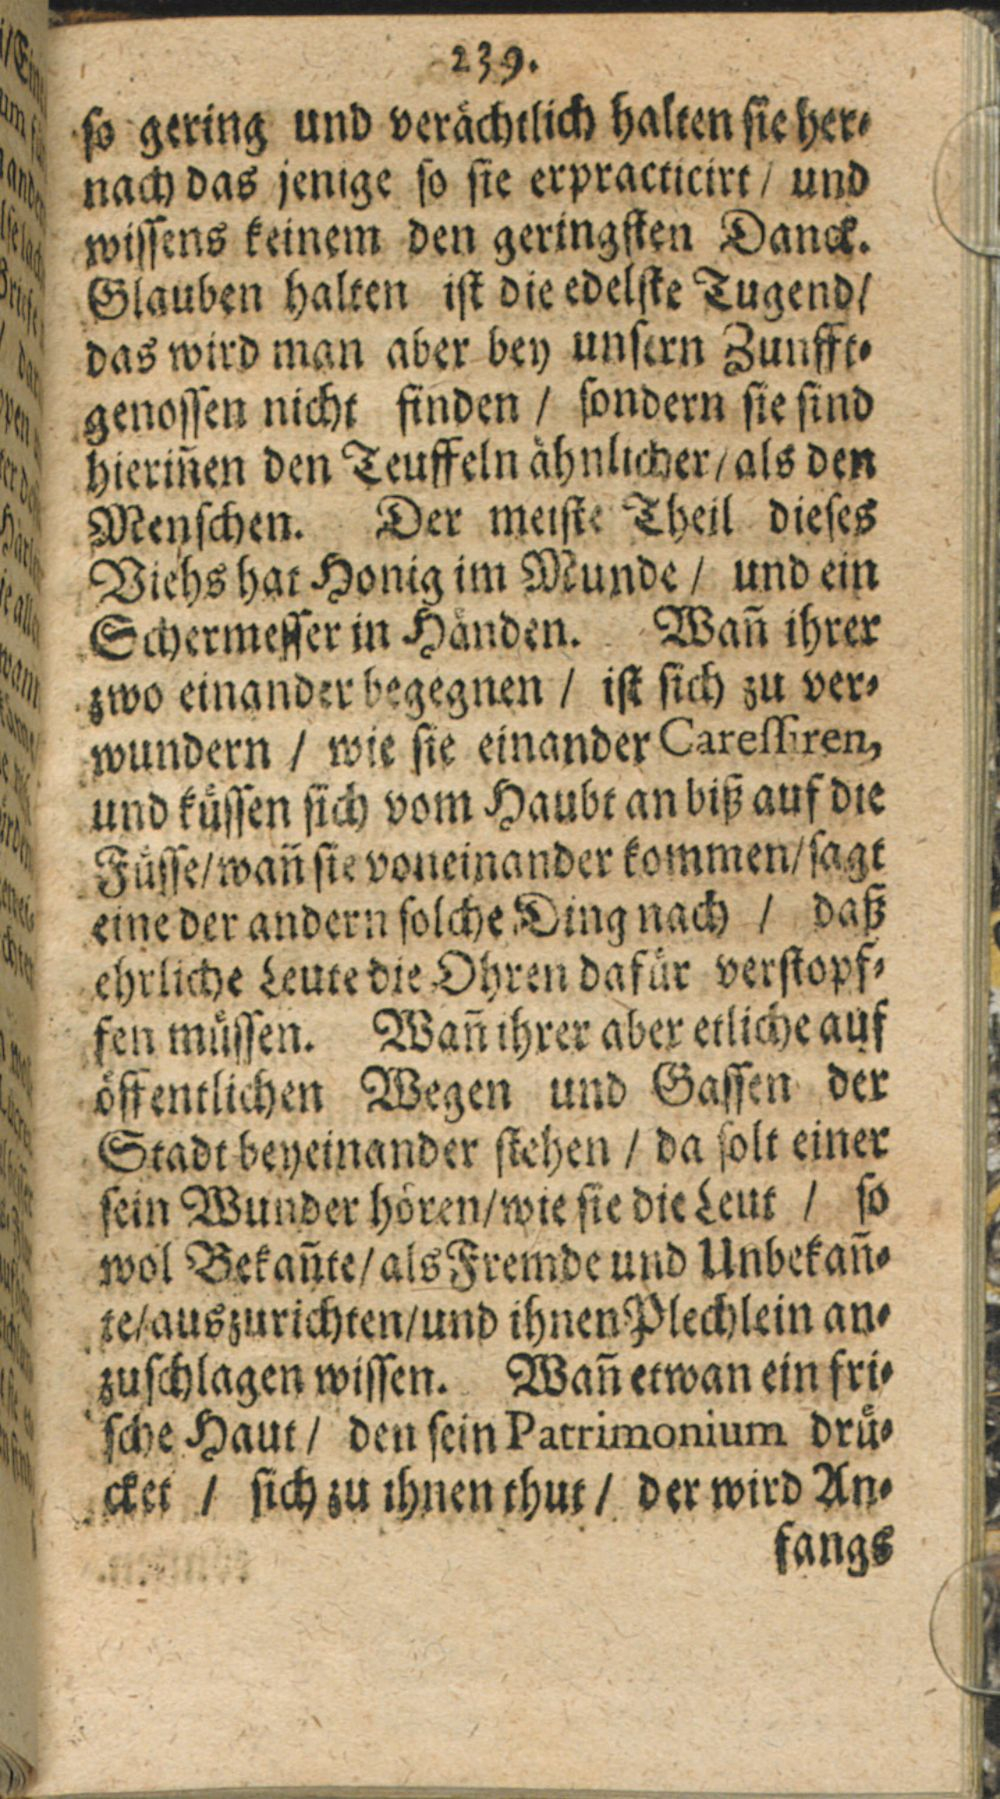 239.
so gering und verächtlich halten sie her⸗
nach das jenige so sie erpracticirt / und
wissens keinem den geringsten Danck.
Glauben halten ist die edelste Tugend/
das wird man aber bey unsern Zunfft⸗
genossen nicht finden / sondern sie sind
hieriñen den Teuffeln ähnlicher/als den
Menschen. Der meiste Theil dieses
Viehs hat Honig im Munde / und ein
Schermesser in Händen. Wañ ihrer
zwo einander begegnen / ist sich zu ver⸗
wundern / wie sie einander Caressiren,
und küssen sich vom Haubt an biß auf die
Füsse/wañ sie voneinander kommen/sagt
eine der andern solche Ding nach / daß
ehrliche Leute die Ohren dafür verstopf⸗
fen müssen. Wañ ihrer aber etliche auf
öffentlichen Wegen und Gassen der
Stadt beyeinander stehen / da solt einer
sein Wunder hören/wie sie die Leut / so
wol Bekañte/als Fremde und Unbekañ⸗
te/auszurichten/und ihnen Plechlein an⸗
zuschlagen wissen. Wañ etwan ein fri⸗
sche Haut / den sein Patrimonium drü⸗
cket / sich zu ihnen thut / der wird An⸗
fangs